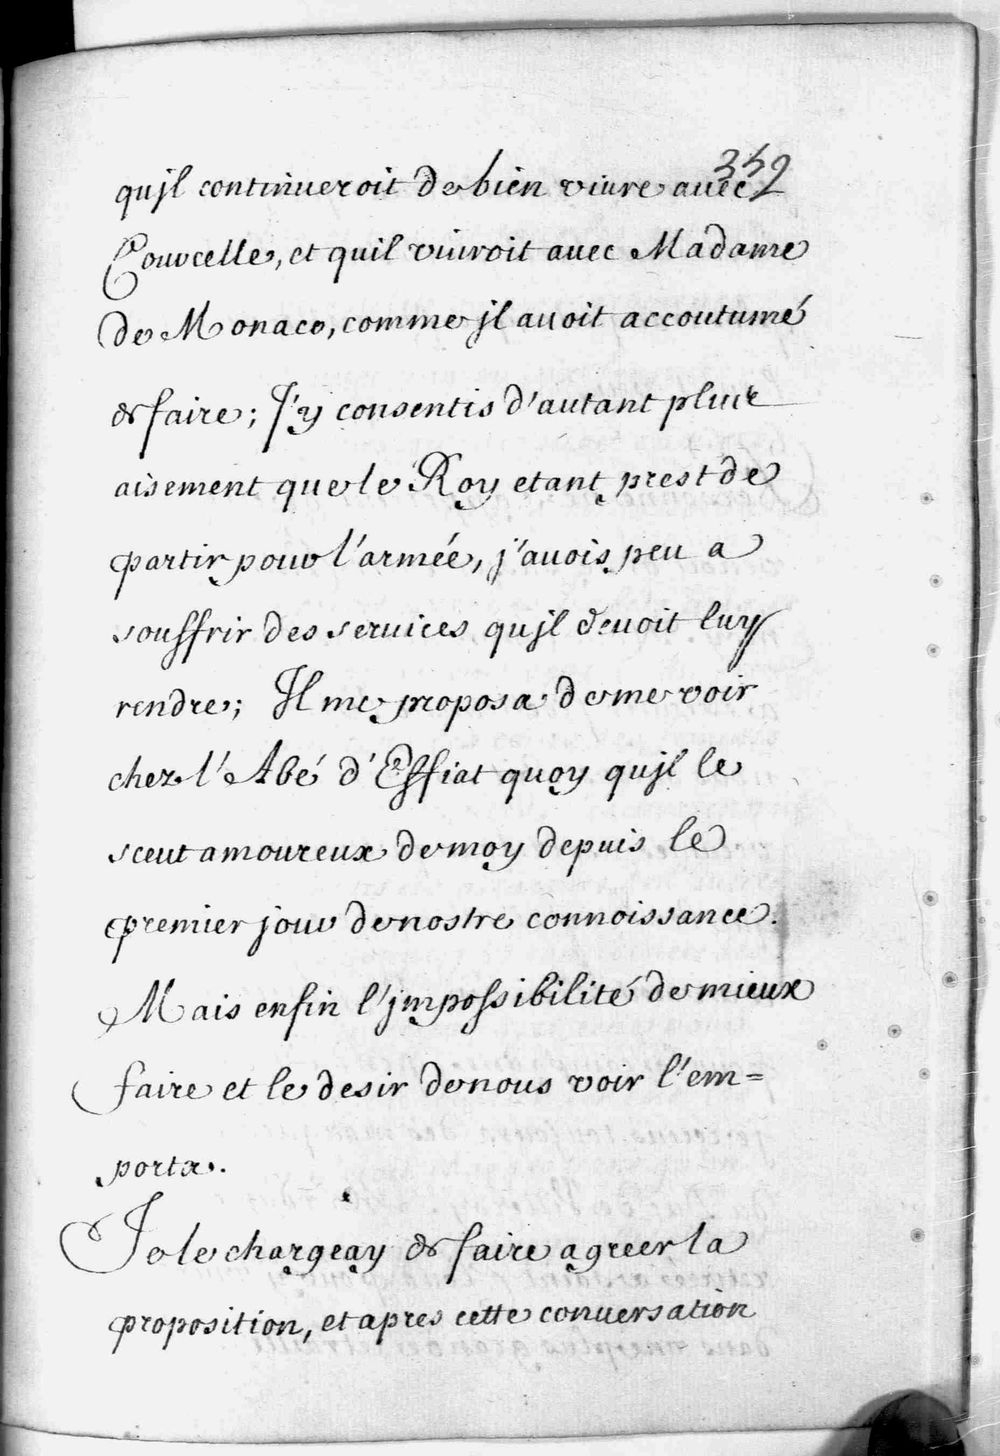 352
qu'jl continueroit de bien viure auec
Courcelle, et quil viuroit auec Madame
de Monaco, comme jl auoit accoutumé
de faire; J'y consentis d'autant plus
aisement que le Roy etant prest de
partir pour l'armée, j'auois peu a
souffrir des seruices qu'jl deuoit luy
rendre; Il me proposa de me voir
chez l'Abé d'Effiat quoy qu'jl le
sceut amoureux de moy depuis le
premier jour de nostre connoissance.
Mais enfin l'jmpossibilité de mieux
faire et le desir de nous voir l'em=
porta.
Je le chargeay de faire agreer la
proposition, et apres cette conuersation